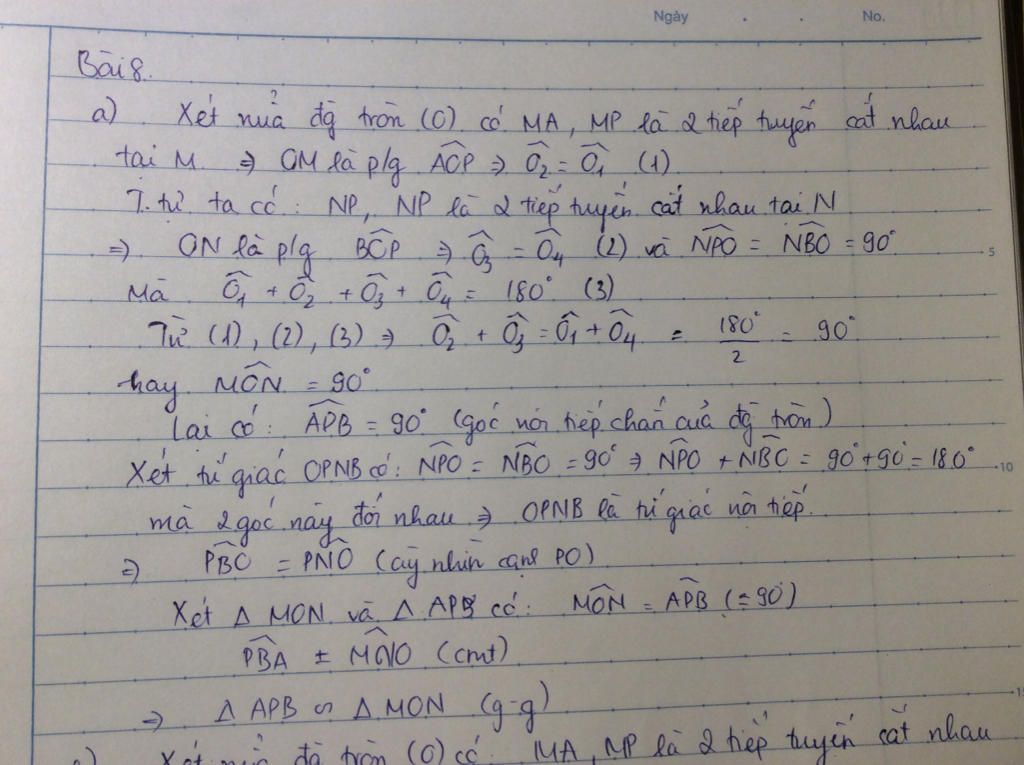 Ngày . . No.
Bài 8.
a) Xét nửa đg tròn (O) có MA, MP là 2 tiếp tuyến cắt nhau
tại M. ⇒ OM là p/g \widehat{AOP} ⇒ \widehat{O_2} = \widehat{O_1} (1)
T. tự ta có: NP, NP là 2 tiếp tuyến cắt nhau tại N
⇒ ON là p/g \widehat{BOP} ⇒ \widehat{O_3} = \widehat{O_4} (2) và \widehat{NPO} = \widehat{NBO} = 90°
5
Mà \widehat{O_1} + \widehat{O_2} + \widehat{O_3} + \widehat{O_4} = 180° (3)
Từ (1), (2), (3) ⇒ \widehat{O_2} + \widehat{O_3} = \widehat{O_1} + \widehat{O_4} = \frac{180°}{2} = 90°
hay \widehat{MON} = 90°
Lại có: \widehat{APB} = 90° (góc nội tiếp chắn cuả đg tròn)
Xét tứ giác OPNB có: \widehat{NPO} = \widehat{NBO} = 90° ⇒ \widehat{NPO} + \widehat{NBO} = 90° + 90° = 180°
10
mà 2 góc này đối nhau ⇒ OPNB là tứ giác nội tiếp.
⇒ \widehat{PBO} = \widehat{PNO} (cùng nhìn cạnh PO)
Xét Δ MON và Δ APB có: \widehat{MON} = \widehat{APB} (= 90°)
\widehat{PBA} = \widehat{MNO} (cmt)
⇒ Δ APB ∽ Δ MON (g-g)
15
Xét nửa đg tròn (O) có MA, MP là 2 tiếp tuyến cắt nhau